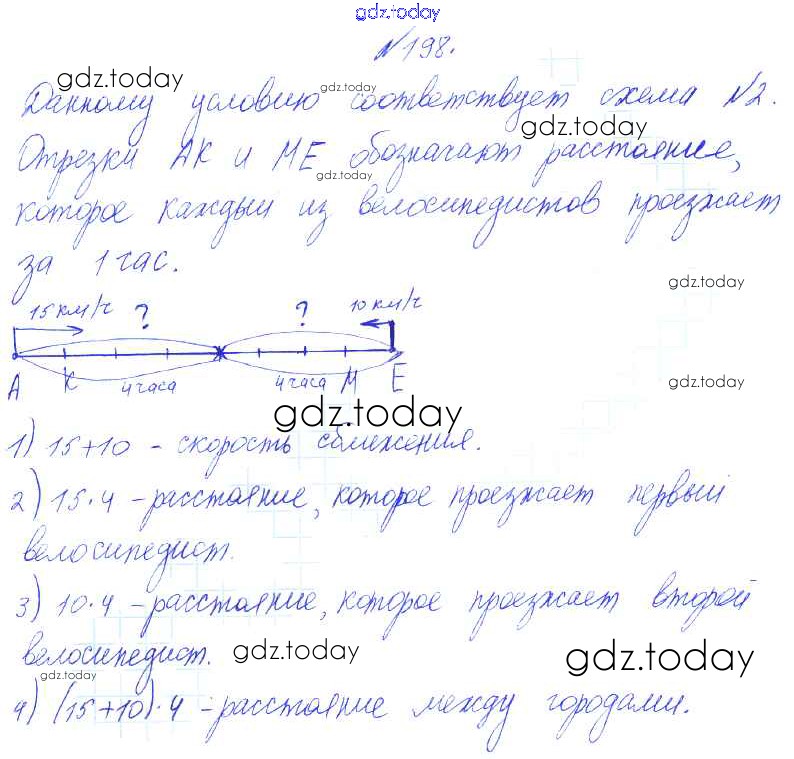 gdz.today
№198.
gdz.today
Данному условию соответствует схема №2.
gdz.today
Отрезки АК и МЕ обозначают расстояние,
gdz.today
которое каждый из велосипедистов проезжает
за 1 час.
gdz.today
15 км/ч ? ? 10 км/ч
А К 4 часа 4 часа М Е
gdz.today
gdz.today
1) 15+10 - скорость сближения.
gdz.today
2) 15·4 - расстояние, которое проезжает первый
велосипедист.
gdz.today
3) 10·4 - расстояние, которое проезжает второй
велосипедист.
gdz.today
gdz.today
gdz.today
4) (15+10)·4 - расстояние между городами.